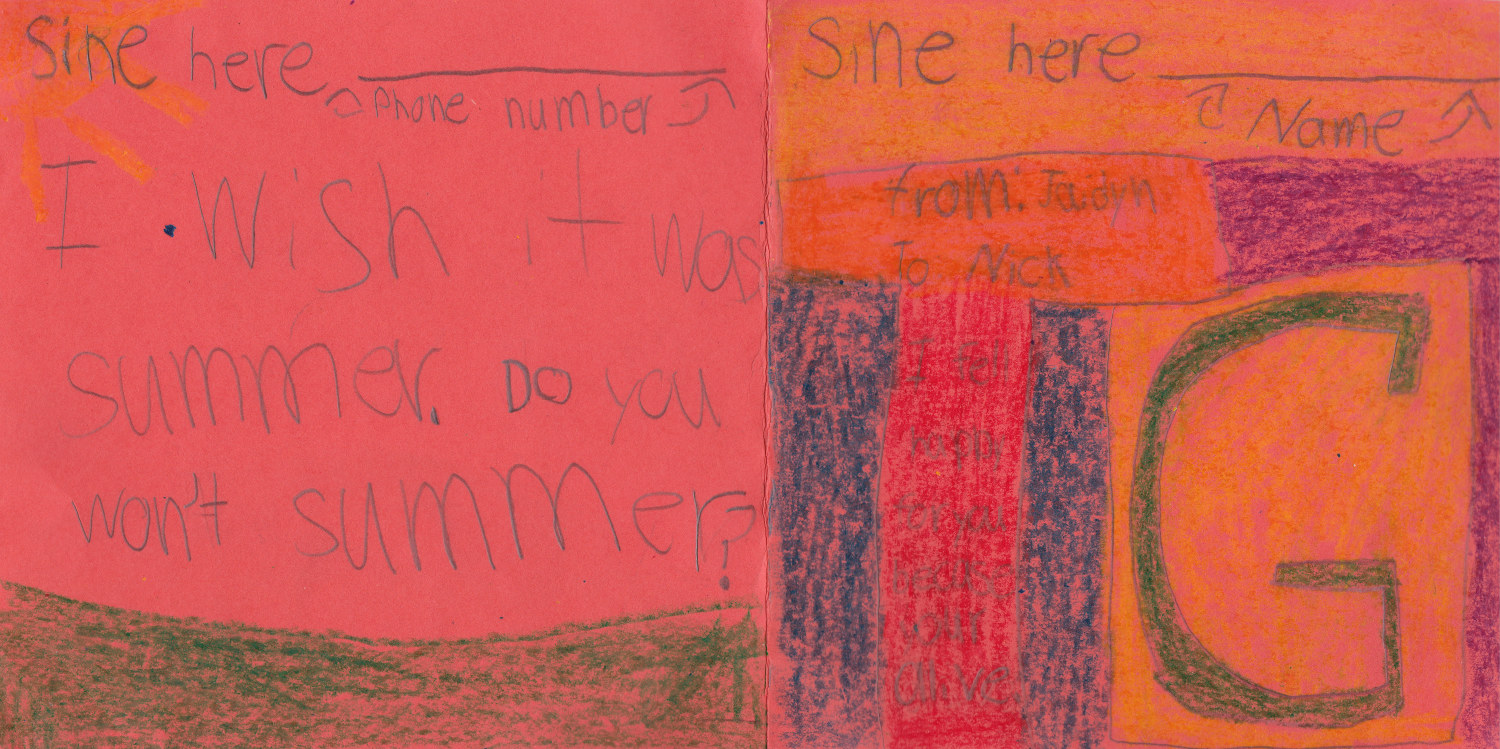 Sine here
Phone number
I wish it was
summer. Do you
won't summer?
Sine here
Name
from: Jaidyn
To Nick
I fell
for you
G